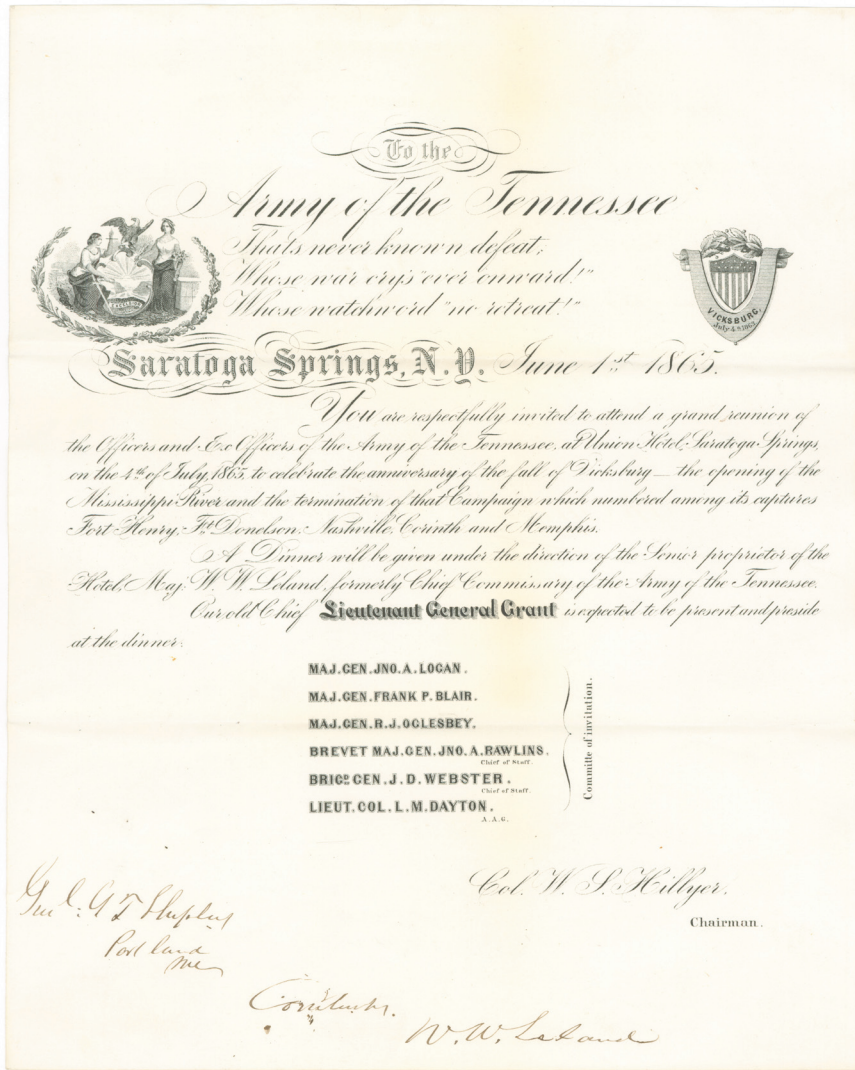 To the
Army of the Tennessee
That's never known defeat;
Whose war cry's "ever onward!"
Whose watchword "no retreat!"
EXCELSIOR
VICKSBURG,
July 4th 1863.
Saratoga Springs, N.Y. June 1st 1865.
You are respectfully invited to attend a grand reunion of
the Officers and Ex Officers of the Army of the Tennessee, at Union Hotel, Saratoga Springs,
on the 4th of July, 1865, to celebrate the anniversary of the fall of Vicksburg — the opening of the
Mississippi River and the termination of that Campaign which numbered among its captures
Fort Henry, Ft. Donelson, Nashville, Corinth and Memphis.
A Dinner will be given under the direction of the Senior proprietor of the
Hotel, Maj. W. W. Leland, formerly Chief Commissary of the Army of the Tennessee.
Our old Chief Lieutenant General Grant is expected to be present and preside
at the dinner.
MAJ. GEN. JNO. A. LOGAN.
MAJ. GEN. FRANK P. BLAIR.
MAJ. GEN. R. J. OGLESBEY.
BREVET MAJ. GEN. JNO. A. RAWLINS.
Chief of Staff.
BRIG. GEN. J. D. WEBSTER.
Chief of Staff.
LIEUT. COL. L. M. DAYTON.
A.A.G.
Committe of invitation.
Col. W. S. Hillyer.
Chairman.
Genl. G F Shepley
Portland
Me
W. W. Leland